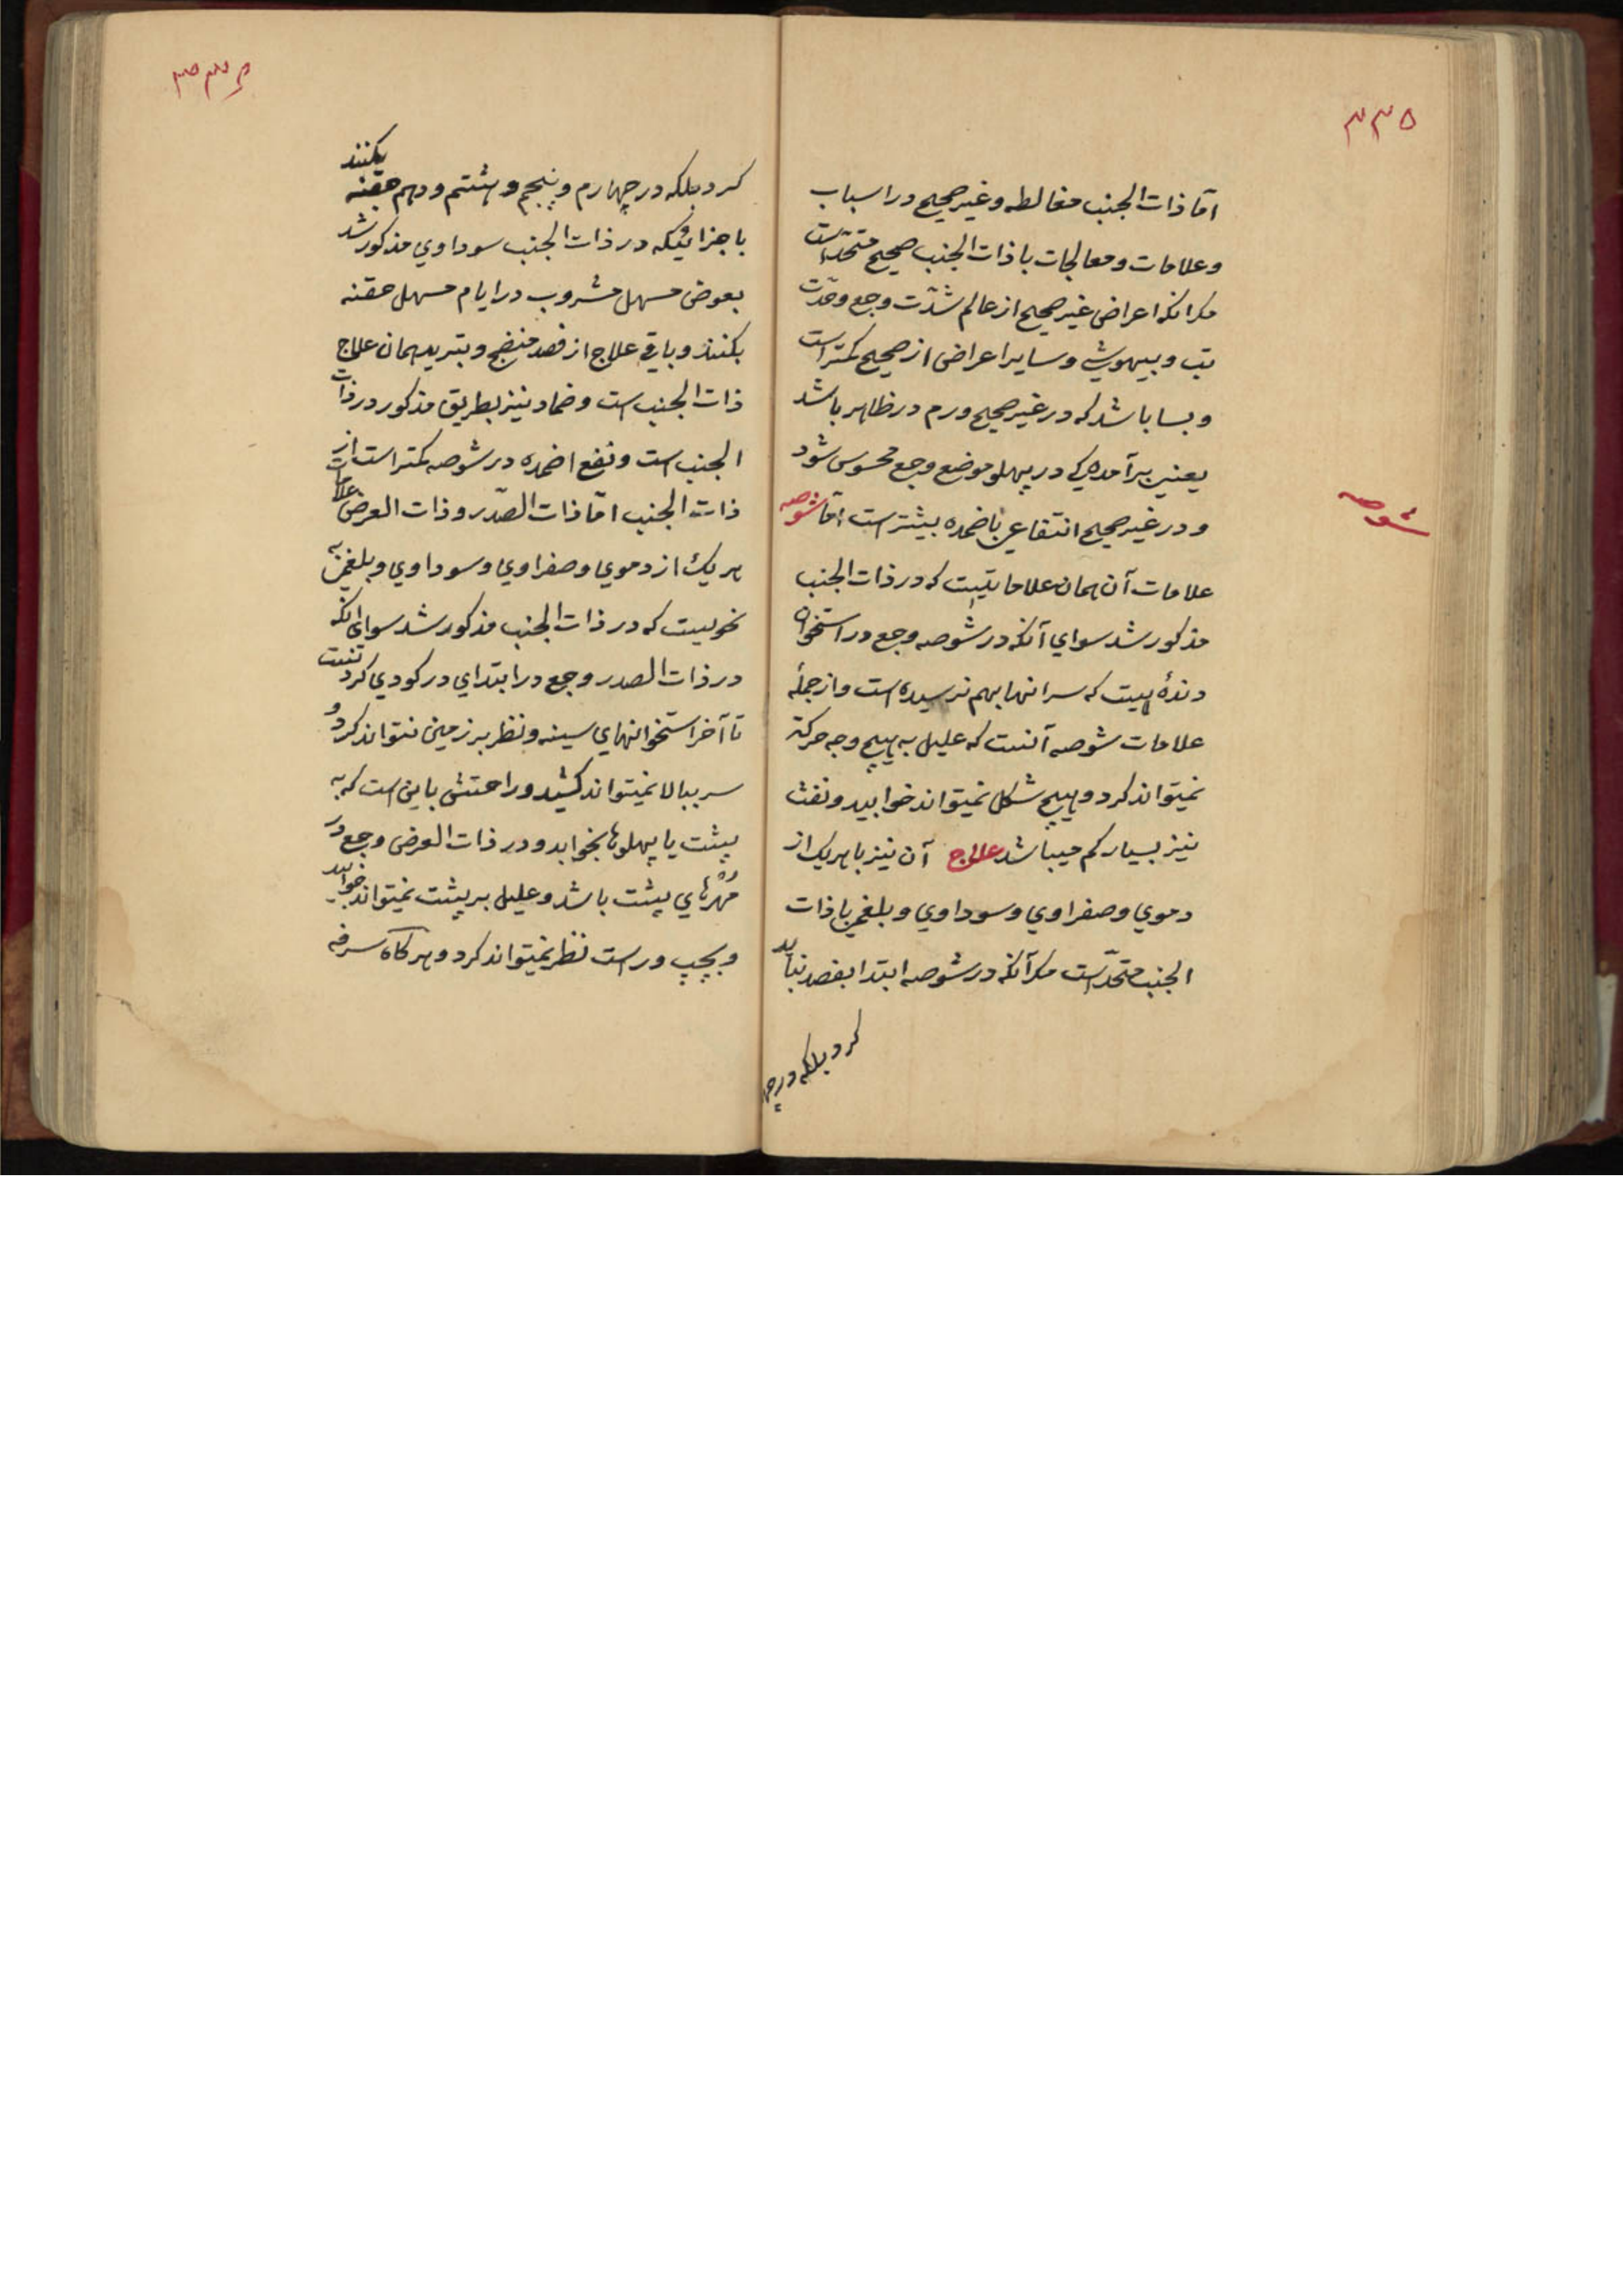 ۳۳۵
اما ذات الجنب مغالطه و غیر صحیح در اسباب
و علامات و معالجات با ذات الجنب صحیح متحد است
مکر انکه اعراض غیر صحیح از عالم شدّت وجع و حدّت
تب و بیهوشي و سایر اعراض از صحیح کمتر است
و بسا باشد که در غیر صحیح ورم در ظاهر باشد
یعني برآمدکي در پهلو موضع وجع محسوس شود
و در غیر صحیح انتفاع باضمده بیشتر است امّا شوصه
شوصه
علامات آن همان علاماتیست که در ذات الجنب
مذکور شد سواي آنکه در شوصه وجع در استخوان
دندهٔ هیت که سر انها بهم نرسیده است و از جملهٔ
علامات شوصه آنست که علیل به هیچ وجه حرکة
نمیتواند کرد و هیچ شکل نمیتواند خوابید و نفث
نیز بسیار کم میباشد علاج آن نیز با هر یک از
دموي و صفراوي و سوداوي و بلغمي با ذات
الجنب متحد است مکر آنکه در شوصه ابتدا بفصد نباید
کرد بلکه در چهـ
۳۳۶
کرد بلکه در چهارم و پنجم و هشتم و دهم حقنه بکنند
با جزائیکه در ذات الجنب سوداوي مذکور شد
بعوض مسهل مشروب در ایام مسهل حقنه
بکنند و باقي علاج از فصد منضج و تبرید همان علاج
ذات الجنب است و ضماد نیز بطریق مذکور در ذات
الجنب است و نفع اضمده در شوصه کمتر است از
ذات الجنب امّا ذات الصّدر و ذات العرض علامات
هر یک از دموي و صفراوي و سوداوي و بلغمي به
نحویست که در ذات الجنب مذکور شد سواي انکه
در ذات الصدر وجع در ابتداي در کودي کردنست
تا آخر استخوانهاي سینه و نظر بر زمین نتواند کرد و
سر ببالا نمیتواند کشید و راحتش باین است که به
پشت یا پهلوها بخوابد و در ذات العرض وجع در
مُهْرهاي پشت باشد و علیل بر پشت نمیتواند خوابید
و بچپ و راست نظر نمیتواند کرد و هر کاه سرفه